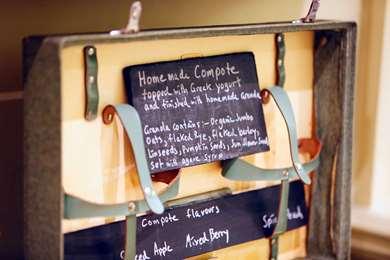 Homemade Compote
topped with Greek yogurt
and finished with homemade Granola
Granola contains:- Organic Jumbo
Oats, flaked Rye, flaked barley,
Linseeds, Pumpkin Seeds, Sunflower Seeds
Set with agave syrup
Compote flavours
Apple Mixed Berry